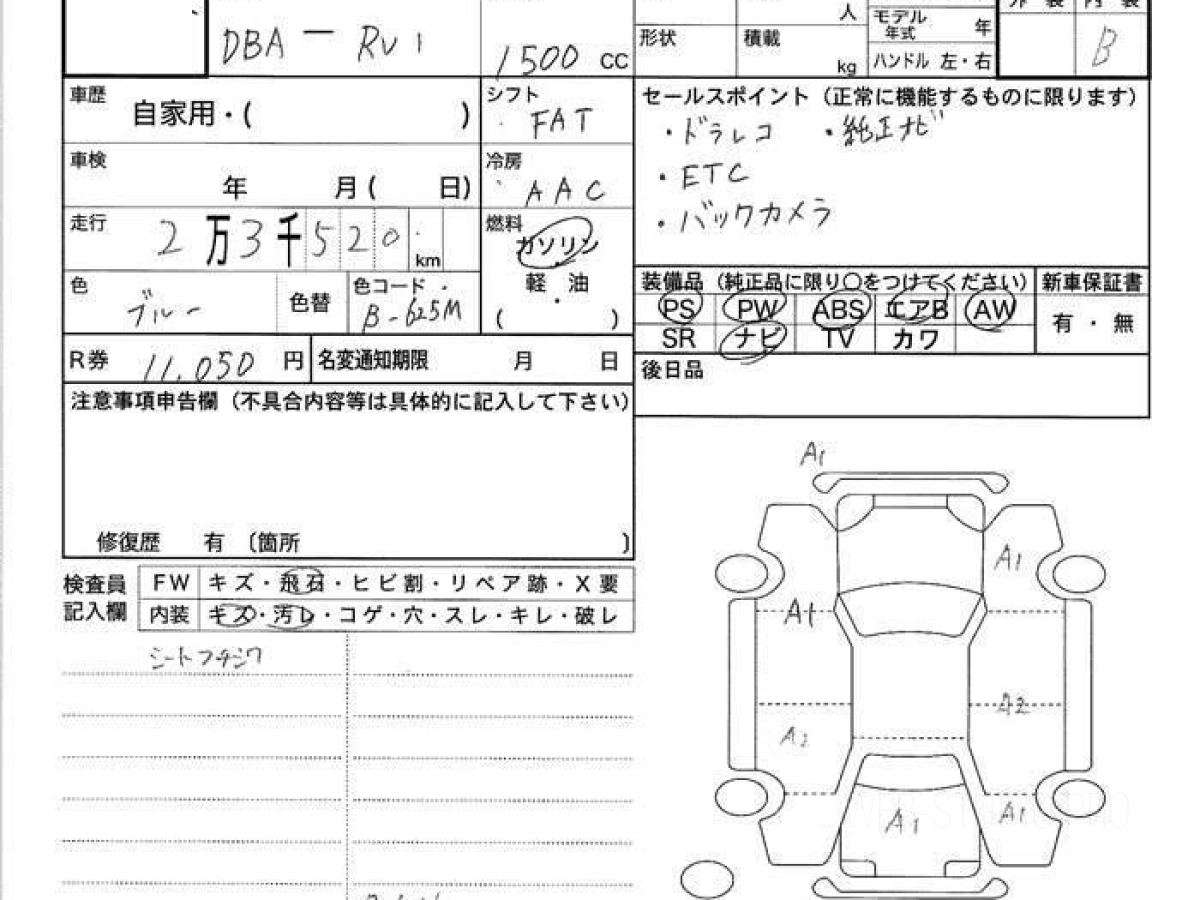 DBA - RV1
1500 cc
人
形状
積載
kg
モデル年式 年
ハンドル 左・右
外装 内装
B
車歴 自家用・( )
シフト FAT
車検 年 月( 日)
冷房 AAC
走行 2万3千520 km
燃料 ガソリン
軽・油
( )
色 ブルー
色替
色コード B-625M
R券 11,050 円
名変通知期限 月 日
注意事項申告欄(不具合内容等は具体的に記入して下さい)
修復歴 有 〔箇所 〕
セールスポイント(正常に機能するものに限ります)
・ドラレコ ・純正ナビ
・ETC
・バックカメラ
装備品(純正品に限り〇をつけてください)
PS PW ABS エアB AW
SR ナビ TV カワ
新車保証書
有・無
後日品
検査員記入欄
FW キズ・飛石・ヒビ割・リペア跡・X要
内装 キズ・汚レ・コゲ・穴・スレ・キレ・破レ
A1
A1
A1
A2
A2
A1
A1